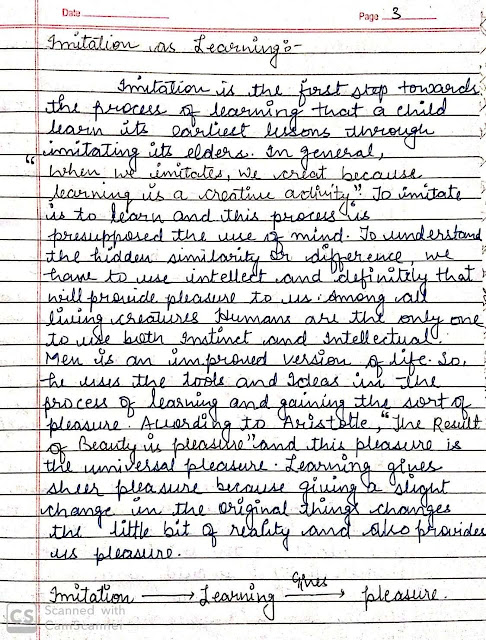 Date
Page 3
Imitation as Learning:-
Imitation is the first step towards
the process of learning that a child
learn its earliest lessons through
imitating its elders. In general,
"When we imitates, we creat because
learning is a creative activity". To imitate
is to learn and this process is
presupposed the use of mind. To understand
the hidden similarity or difference, we
have to use intellect and definitely that
will provide pleasure to us. Among all
living creatures Humans are the only one
to use both Instinct and Intellectual.
Men is an improved version of life. So,
he uses the Tools and Ideas in the
process of learning and gaining the sort of
pleasure. According to Aristotle, "The Result
of Beauty is pleasure" and this pleasure is
the universal pleasure. Learning gives
sheer pleasure because giving a slight
change in the original things changes
the little bit of reality and also provides
us pleasure.
Imitation → Learning Gives → pleasure.
CS Scanned with
CamScanner